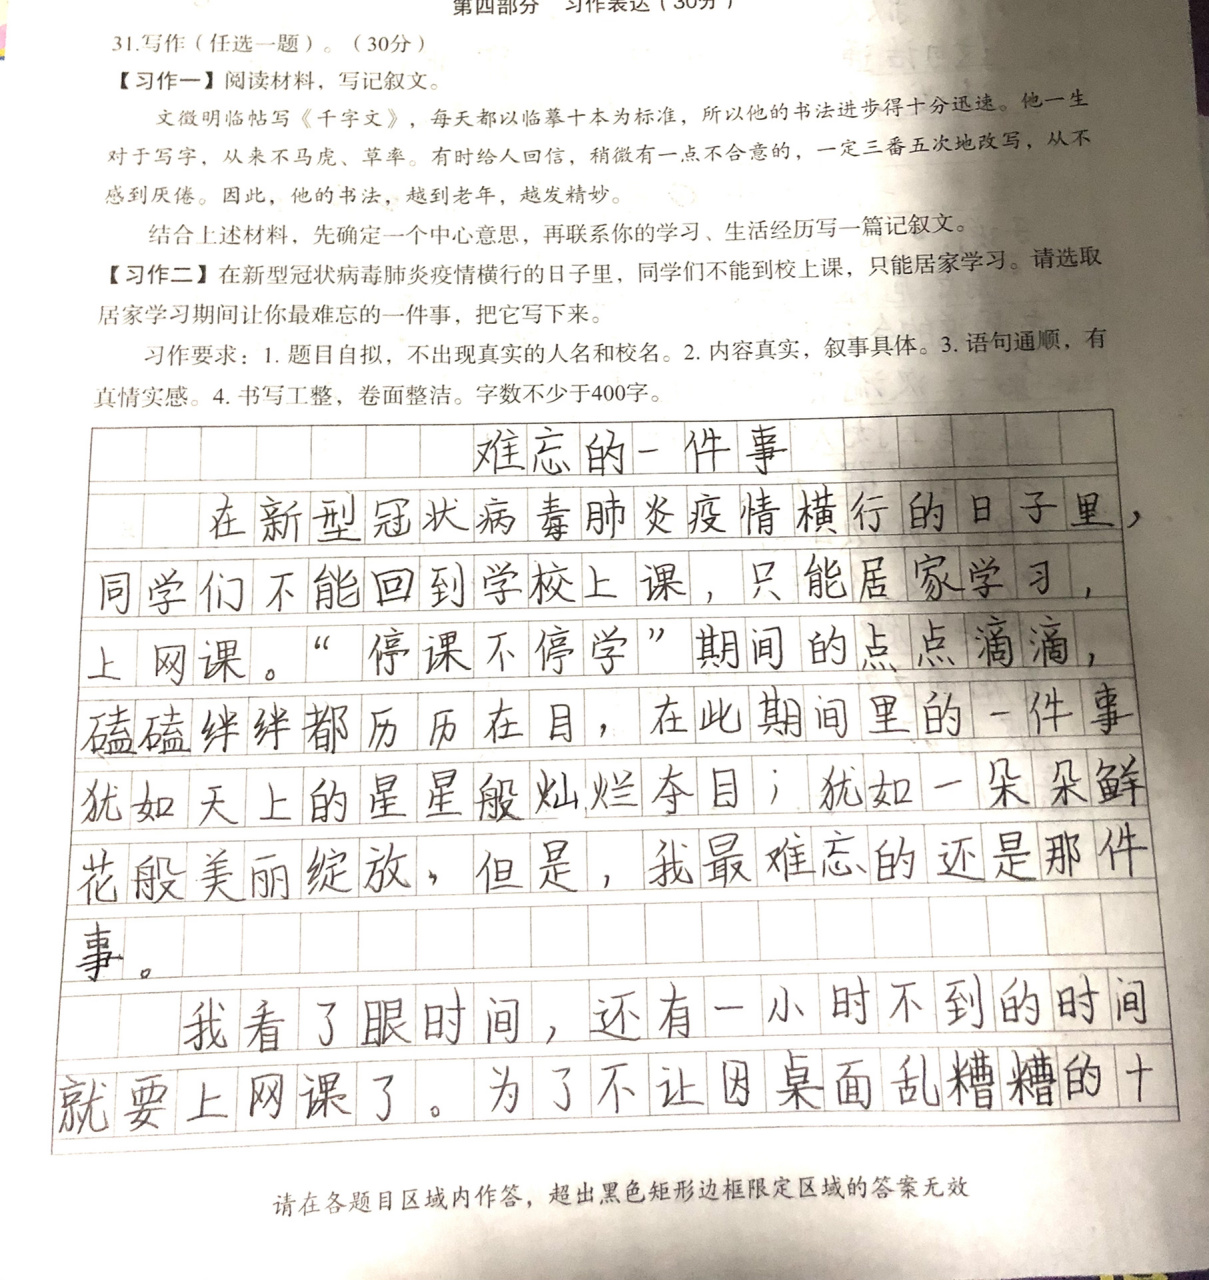 第四部分 习作表达（30分）
31.写作（任选一题）。（30分）
【习作一】阅读材料，写记叙文。
文徵明临帖写《千字文》，每天都以临摹十本为标准，所以他的书法进步得十分迅速。他一生
对于写字，从来不马虎、草率。有时给人回信，稍微有一点不合意的，一定三番五次地改写，从不
感到厌倦。因此，他的书法，越到老年，越发精妙。
结合上述材料，先确定一个中心意思，再联系你的学习、生活经历写一篇记叙文。
【习作二】在新型冠状病毒肺炎疫情横行的日子里，同学们不能到校上课，只能居家学习。请选取
居家学习期间让你最难忘的一件事，把它写下来。
习作要求：1. 题目自拟，不出现真实的人名和校名。2. 内容真实，叙事具体。3. 语句通顺，有
真情实感。4. 书写工整，卷面整洁。字数不少于400字。
难忘的一件事
在新型冠状病毒肺炎疫情横行的日子里，
同学们不能回到学校上课，只能居家学习，
上网课。“停课不停学”期间的点点滴滴，
磕磕绊绊都历历在目，在此期间里的一件事
犹如天上的星星般灿烂夺目；犹如一朵朵鲜
花般美丽绽放，但是，我最难忘的还是那件
事。
我看了眼时间，还有一小时不到的时间
就要上网课了。为了不让因桌面乱糟糟的十
请在各题目区域内作答，超出黑色矩形边框限定区域的答案无效